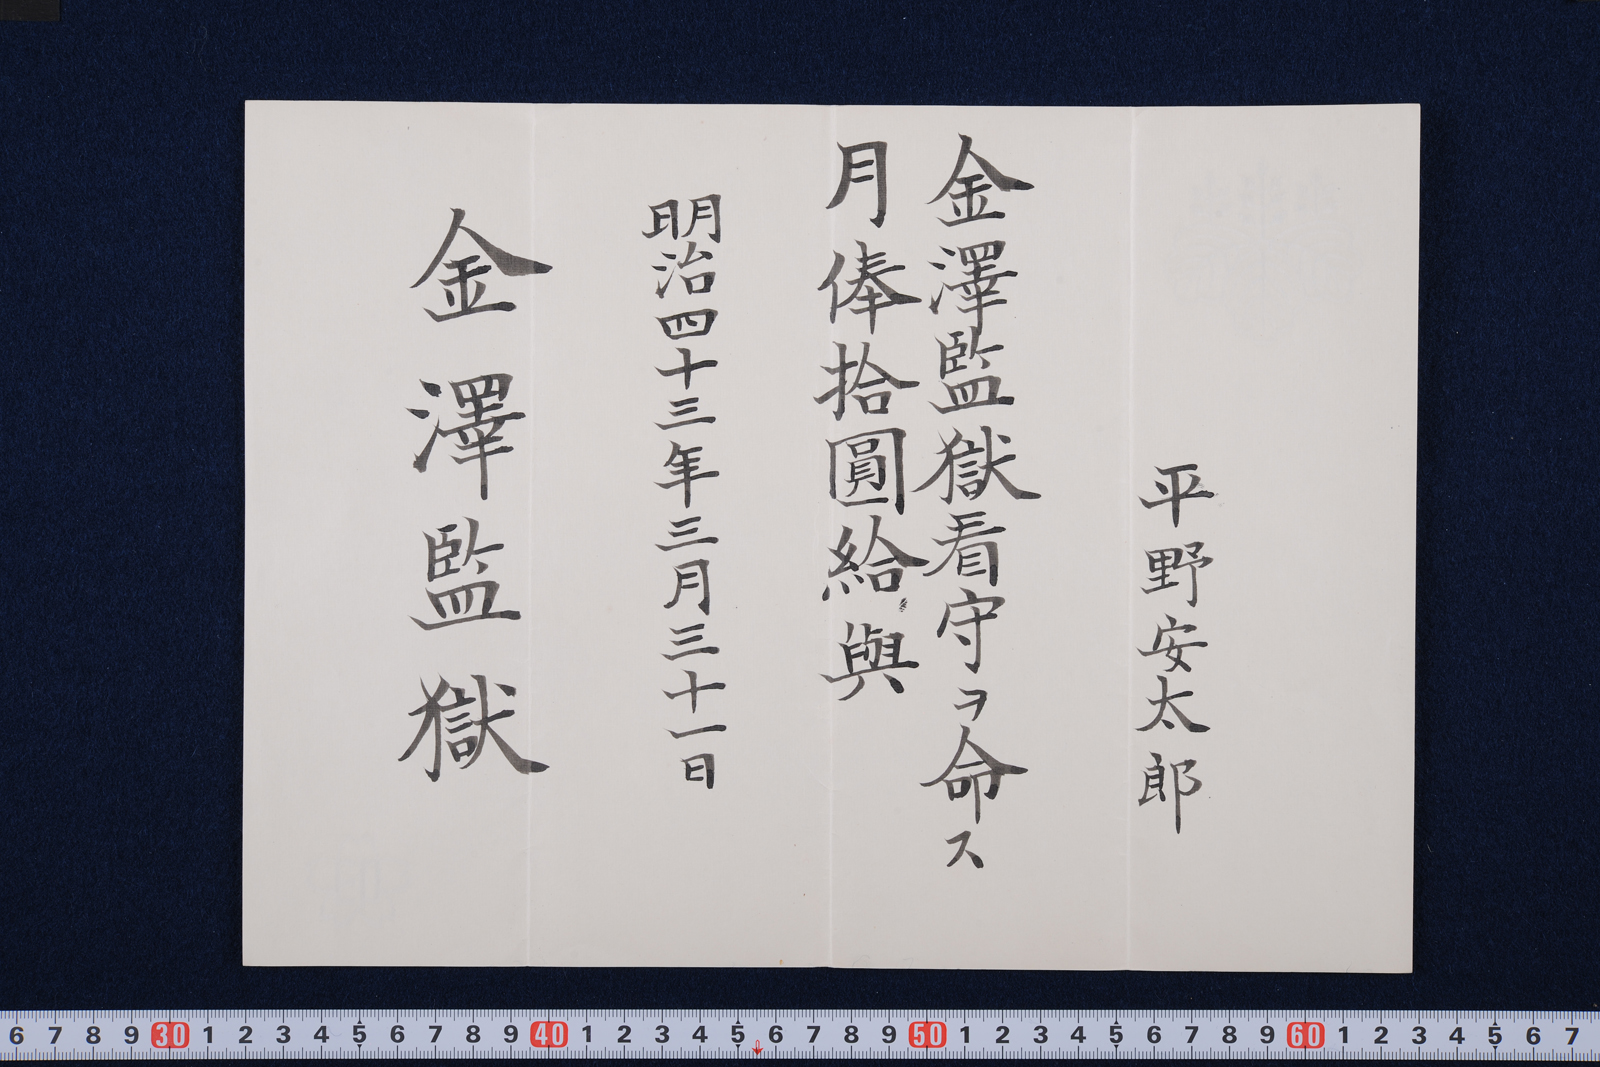 平野安太郎
金澤監獄看守ヲ命ス
月俸拾圓給與
明治四十三年三月三十一日
金澤監獄
6 7 8 9 30 1 2 3 4 5 6 7 8 9 40 1 2 3 4 5 6 7 8 9 50 1 2 3 4 5 6 7 8 9 60 1 2 3 4 5 6 7